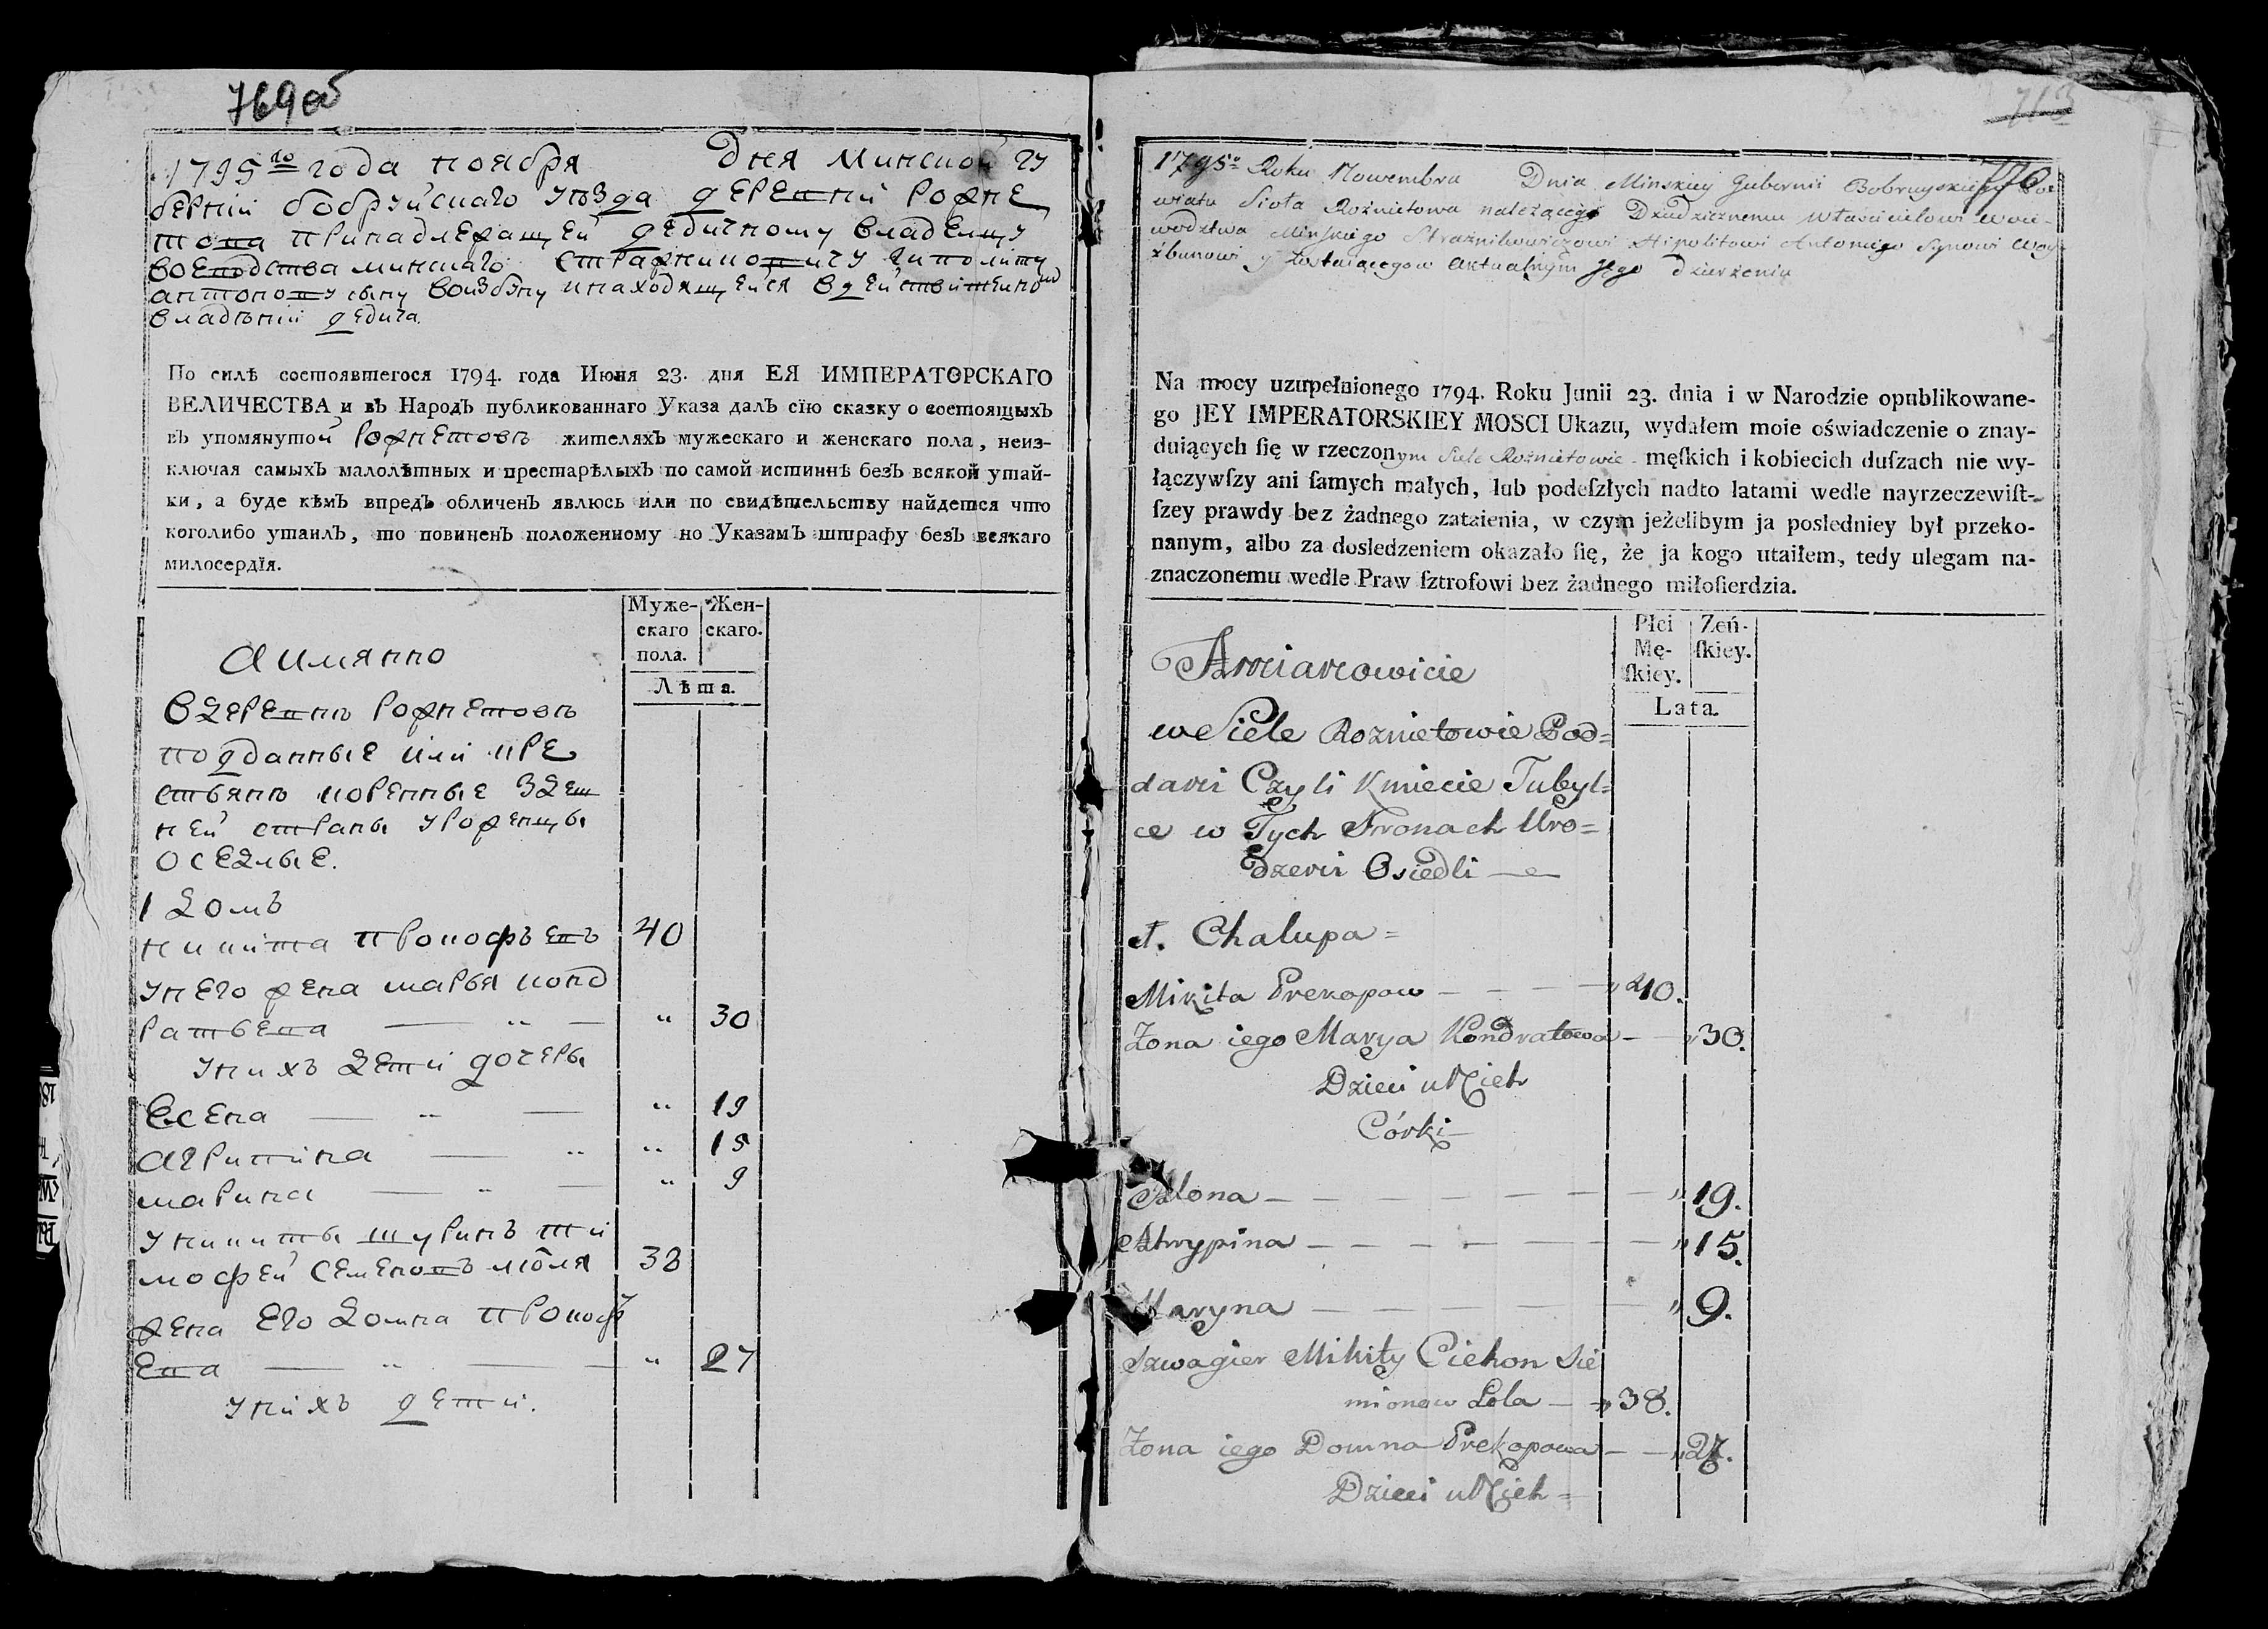 769об
1795го года ноября Дня Минской гу
бернiи бобруйскаго уѣзда деревни Рожне
това принадлежащей дедичному владелцу
воеводства минскаго стражниковичу гиполиту
антоновичу сыну воизбуну и находящейся в действителном
владѣнiи дедича.
По силѣ состоявшегося 1794. года Июня 23. дня ЕЯ ИМПЕРАТОРСКАГО
ВЕЛИЧЕСТВА и въ Народъ публикованнаго Указа далъ сїю сказку о состоящыхъ
въ упомянутой Рожнетовѣ жителяхъ мужескаго и женскаго пола, неиз-
ключая самыхъ малолѣтныхъ и престарѣлыхъ по самой истиннѣ безъ всякой утай-
ки, а буде кѣмъ впредъ обличенъ явлюсь или по свидѣтельству найдется что
коголибо утаилъ, то повиненъ положенному по Указамъ штрафу безъ всякаго
милосердїя.
Муже-
скаго
пола.
Жен-
скаго.
Лѣта.
а имянно
в деревнѣ Рожнетовѣ
подданные или кре
стьянѣ коренные здеш
ней страны уроженцы
оседлые.
1 домъ
никита прокофьевъ 40
у него жена марья конд
ратьева — „ — „ 30
у них детей дочеры
Елена — „ — „ 19
агрипина — „ „ 15
марина — „ — „ 9
у никиты шуринъ ти
мофей семеновъ люля 38
жена его домна прокофь
ева — „ — „ 27
у них детей.
713
770
1795o Roku Nowembra Dnia Minskiey Gubernii Bobruyskiego Po
wiatu Sioła Rożnietowa należącego Dziedzicznemu Właścicielowi woie-
wodztwa Minskiego Strażnikowiczowi Hipolitowi Antoniego Synowi Woy
zbunowi y Zostaiącego w aktualnym jego dzierżeniu
Na mocy uzupełnionego 1794. Roku Junii 23. dnia i w Narodzie opublikowane-
go JEY IMPERATORSKIEY MOSCI Ukazu, wydałem moie oświadczenie o znay-
duiących ſię w rzeczonym Siele Rożnietowie męſkich i kobiecich duſzach nie wy-
łączywſzy ani ſamych małych, lub podeſzłych nadto łatami wedle nayrzeczewiſt-
ſzey prawdy bez żadnego zataienia, w czym jeżelibym ja posledniey był przeko-
nanym, albo za dosledzeniem okazało ſię, że ja kogo utaiłem, tedy ulegam na-
znaczonemu wedle Praw ſztrofowi bez żadnego miłoſierdzia.
Płci
Mę-
ſkiey.
Żeń-
ſkiey.
Lata.
A mianowicie
w Siele Roznietowie Pod=
dani Czyli Kmiecie Tubyl=
ce w Tych Stronach Uro=
dzeni Osiedli
1. Chalupa =
Mikita Prekopow — — — — „ 40.
Żona iego Marya Kondratowa — „ 30.
Dzieci u Nich
Córki
Alona — — — — — — „ 19.
Ahrypina — — — — — — „ 15.
Maryna — — — — — „ 9.
Szwagier Mikity Cichon Sie
mionow Lola — „ 38.
Żona iego Domna Prekopowa — — „ 27.
Dzieci u Nich =